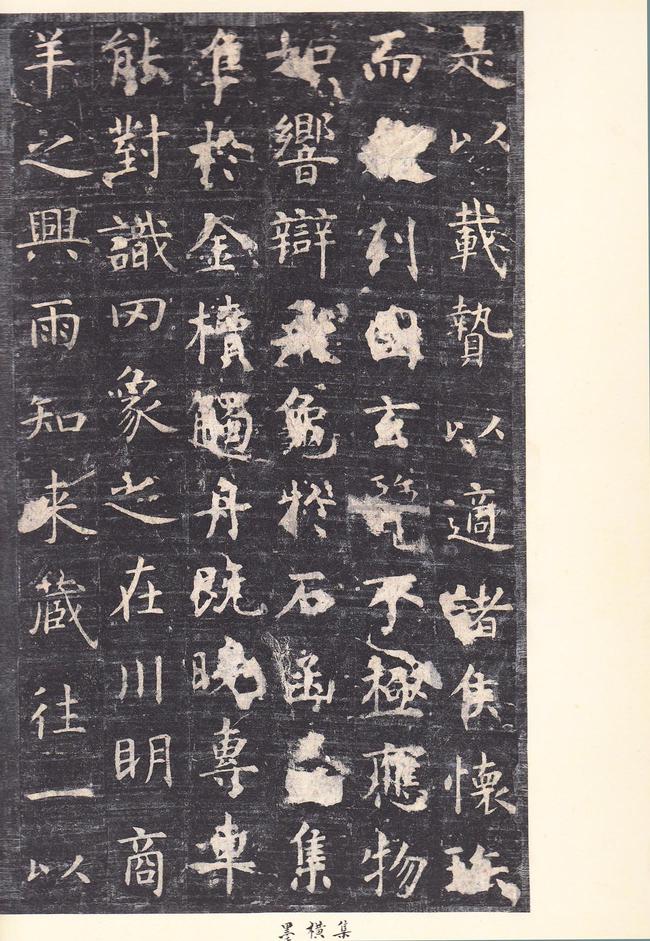 是以載贄以適諸侯懷珍
而列國玄覽不極應物
如響辯飛龜於石函集
隼於金櫝觸舟既曉專車
能對識罔象之在川明商
羊之興雨知来藏往一以
集橫墨